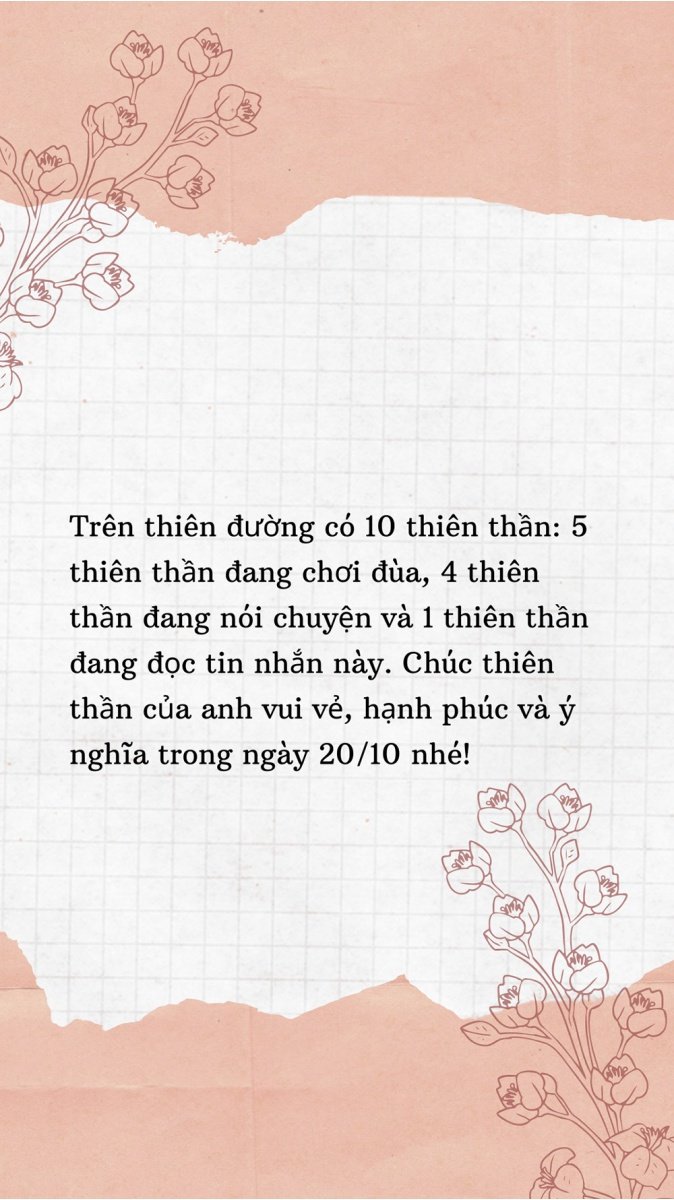 Trên thiên đường có 10 thiên thần: 5
thiên thần đang chơi đùa, 4 thiên
thần đang nói chuyện và 1 thiên thần
đang đọc tin nhắn này. Chúc thiên
thần của anh vui vẻ, hạnh phúc và ý
nghĩa trong ngày 20/10 nhé!